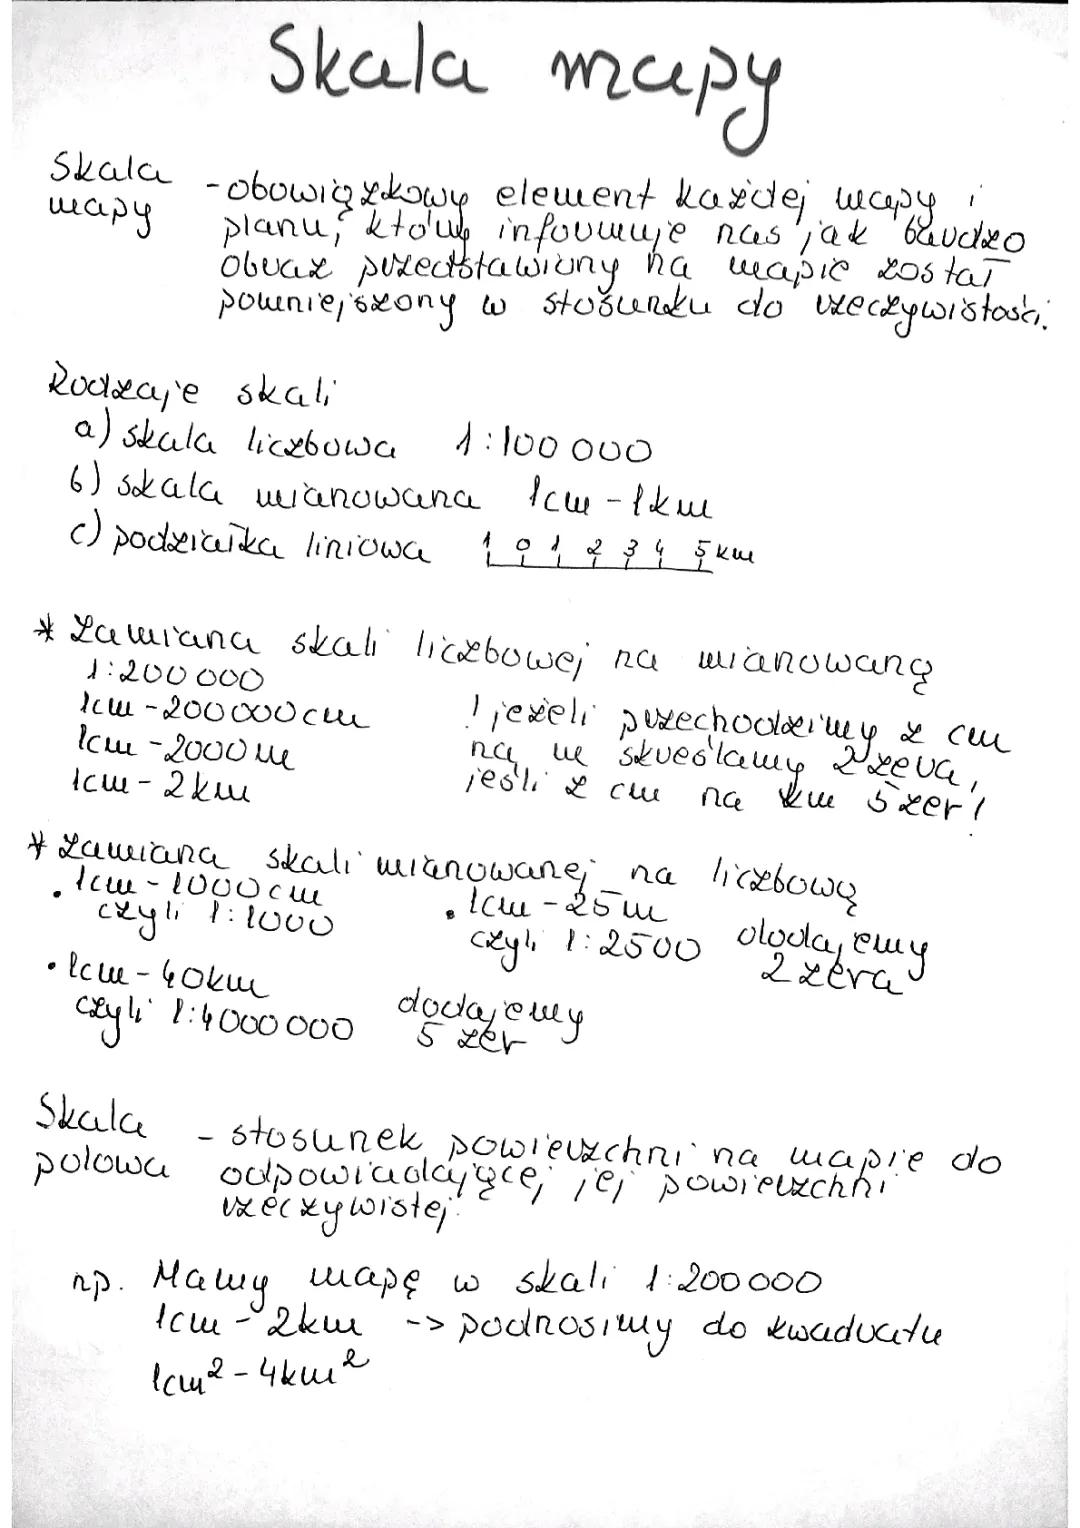 Skala mapy
Skala mapy - obowiązkowy element każdej mapy i
planu, który informuje nas jak bardzo
obraz przedstawiony na mapie został
pomniejszony w stosunku do rzeczywistości.
Rodzaje skali
a) skala liczbowa 1:100 000
b) skala mianowana 1cm - 1km
c) podziałka liniowa 1 0 1 2 3 4 5 km
* Zamiana skali liczbowej na mianowaną
1:200 000
1cm - 200 000 cm
1cm - 2000 m
1cm - 2 km
! jeżeli przechodzimy z cm
na m skreślamy 2 zera,
jeśli z cm na km 5 zer!
* Zamiana skali mianowanej na liczbową
• 1cm - 1000 cm
czyli 1:1000
• 1cm - 25 m
czyli 1:2500 dodajemy
2 zera
• 1cm - 40km
czyli 1:4000 000 dodajemy
5 zer
Skala polowa - stosunek powierzchni na mapie do
odpowiadającej jej powierzchni
rzeczywistej.
np. Mamy mapę w skali 1:200 000
1cm - 2km -> podnosimy do kwadratu
1cm² - 4km²